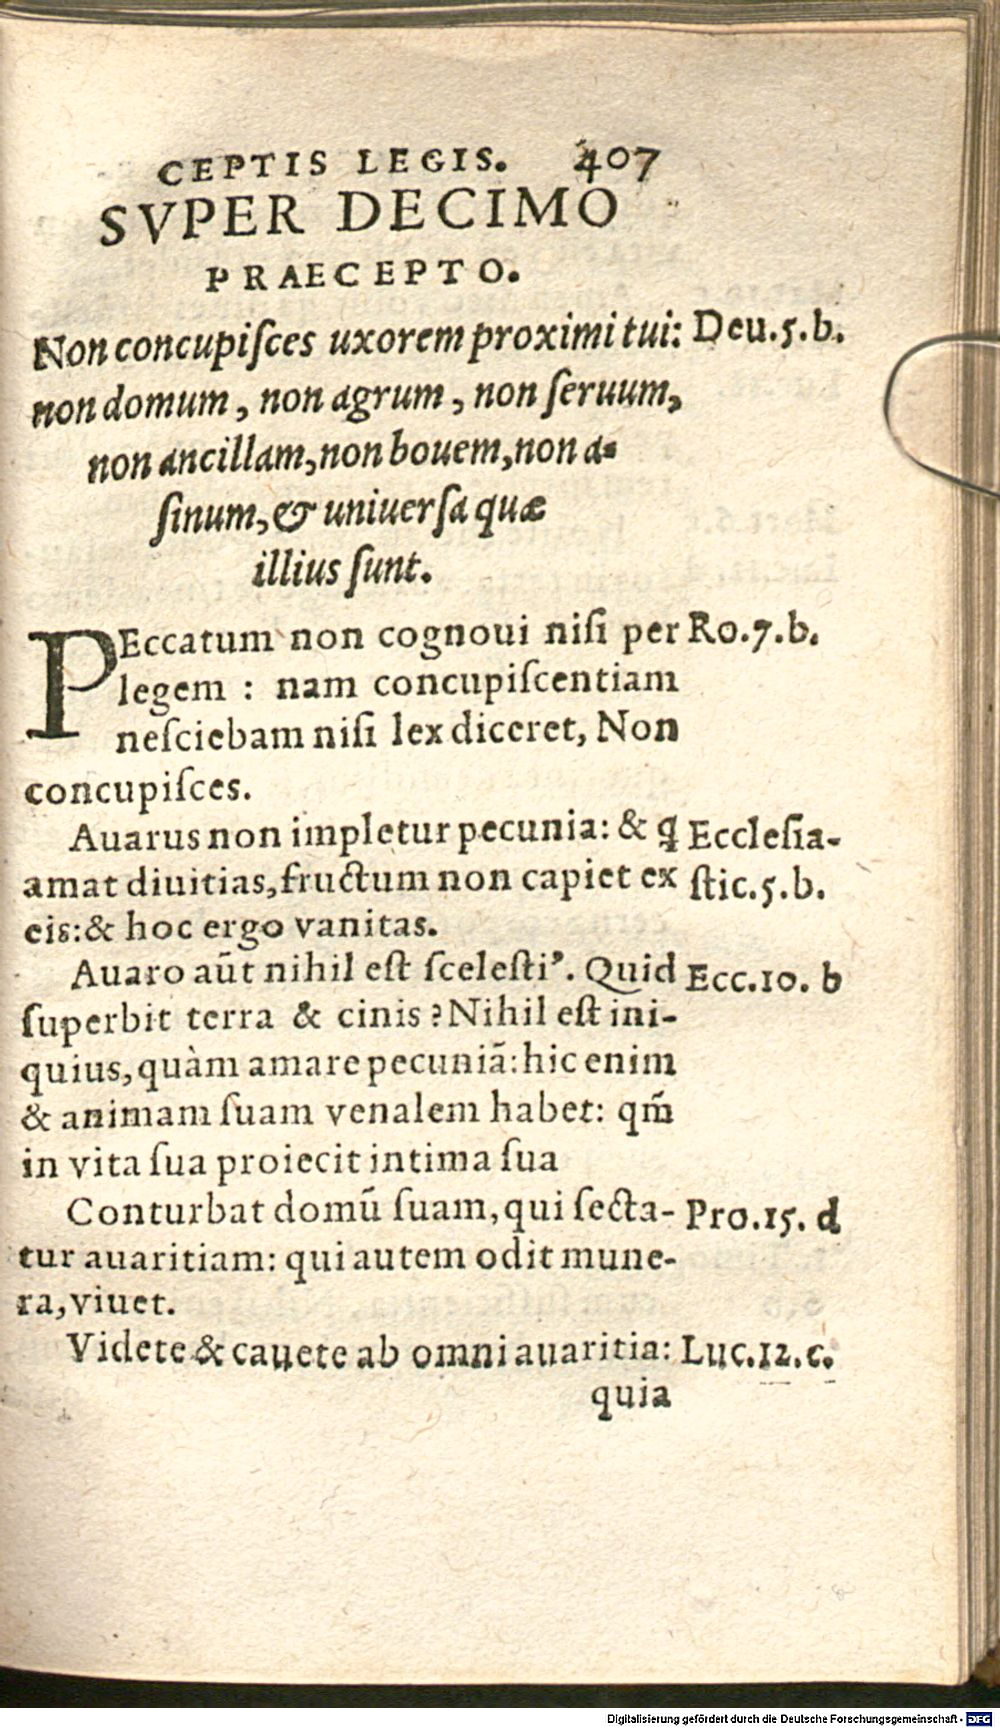 CEPTIS LEGIS. 407
SVPER DECIMO
PRAECEPTO.
Non concupiſces uxorem proximi tui: Deu.5.b.
non domum, non agrum, non ſeruum,
non ancillam, non bouem, non a-
ſinum, & uniuerſa quæ
illius ſunt.
PEccatum non cognoui niſi per Ro.7.b.
legem : nam concupiſcentiam
neſciebam niſi lex diceret, Non
concupiſces.
Auarus non impletur pecunia: & ꝗ Eccleſia-
amat diuitias, fructum non capiet ex ſtic.5.b.
eis: & hoc ergo vanitas.
Auaro aũt nihil eſt ſceleſtiꝰ. Quid Ecc.10. b
ſuperbit terra & cinis? Nihil eſt ini-
quius, quàm amare pecuniã: hic enim
& animam ſuam venalem habet: qm̃
in vita ſua proiecit intima ſua
Conturbat domũ ſuam, qui ſecta- Pro.15. d
tur auaritiam: qui autem odit mune-
ra, viuet.
Videte & cauete ab omni auaritia: Luc.12.c.
quia
Digitalisierung gefördert durch die Deutsche Forschungsgemeinschaft - DFG